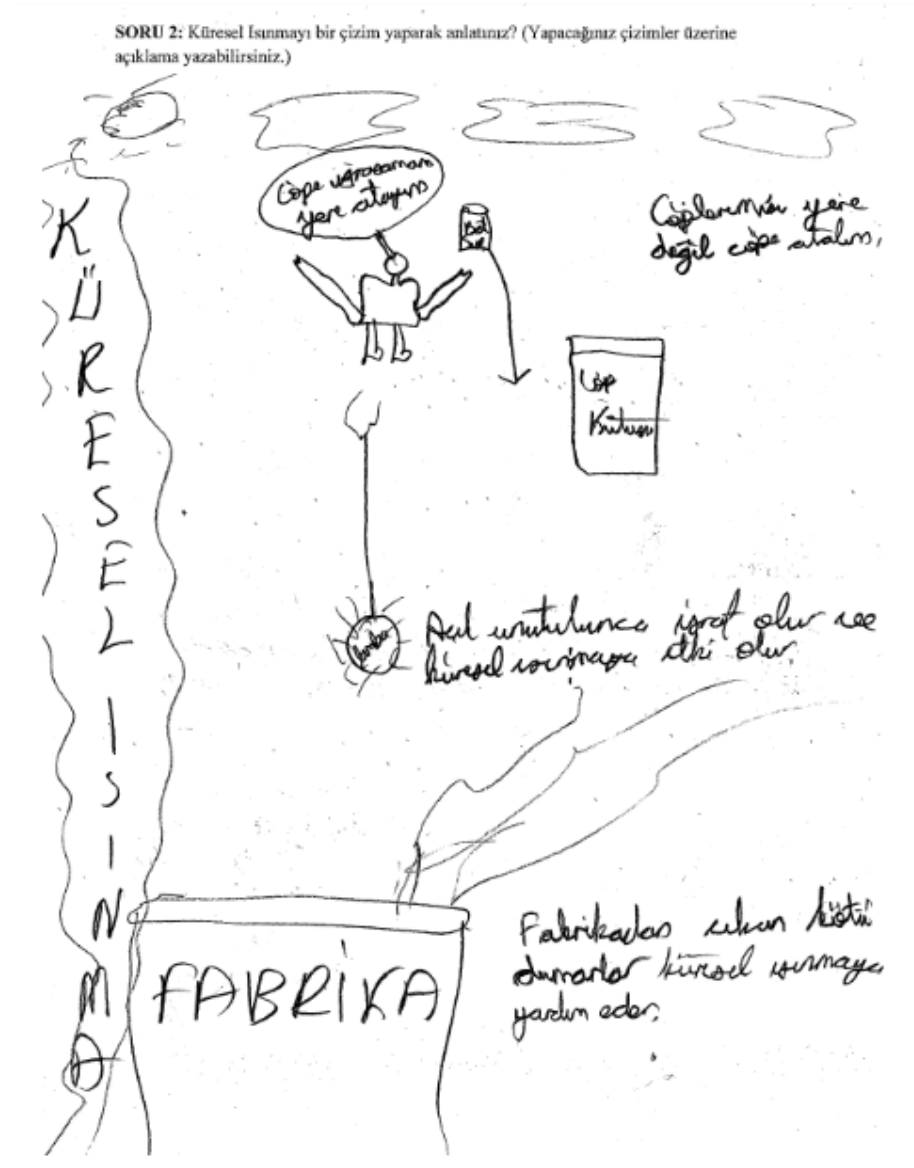 SORU 2: Küresel Isınmayı bir çizim yaparak anlatınız? (Yapacağınız çizimler üzerine
açıklama yazabilirsiniz.)
KÜRESEL ISINMA
Çöpe uğraşamam
yere atayım
Çöplerimizi yere
değil çöpe atalım.
Çöp
Kutusu
lamba
Açıl unutulunca israf olur ve
küresel ısınmaya etki olur
FABRİKA
Fabrikadan çıkan kötü
dumanlar küresel ısınmaya
yardım eder.